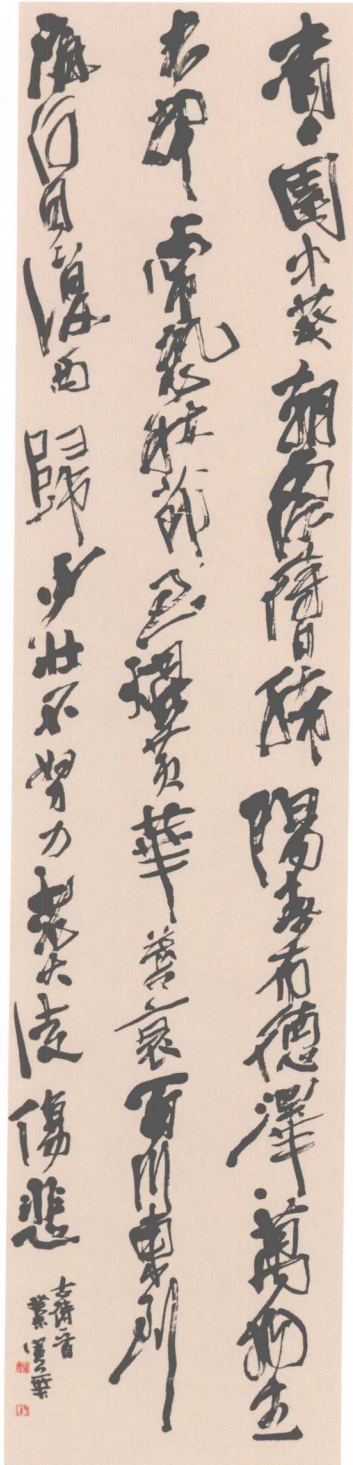 青〻園中葵朝露待日晞陽春布德澤萬物生
光輝常恐秋節至焜黃華葉衰百川東到
海何日復西歸少壯不努力老大徒傷悲
古詩一首